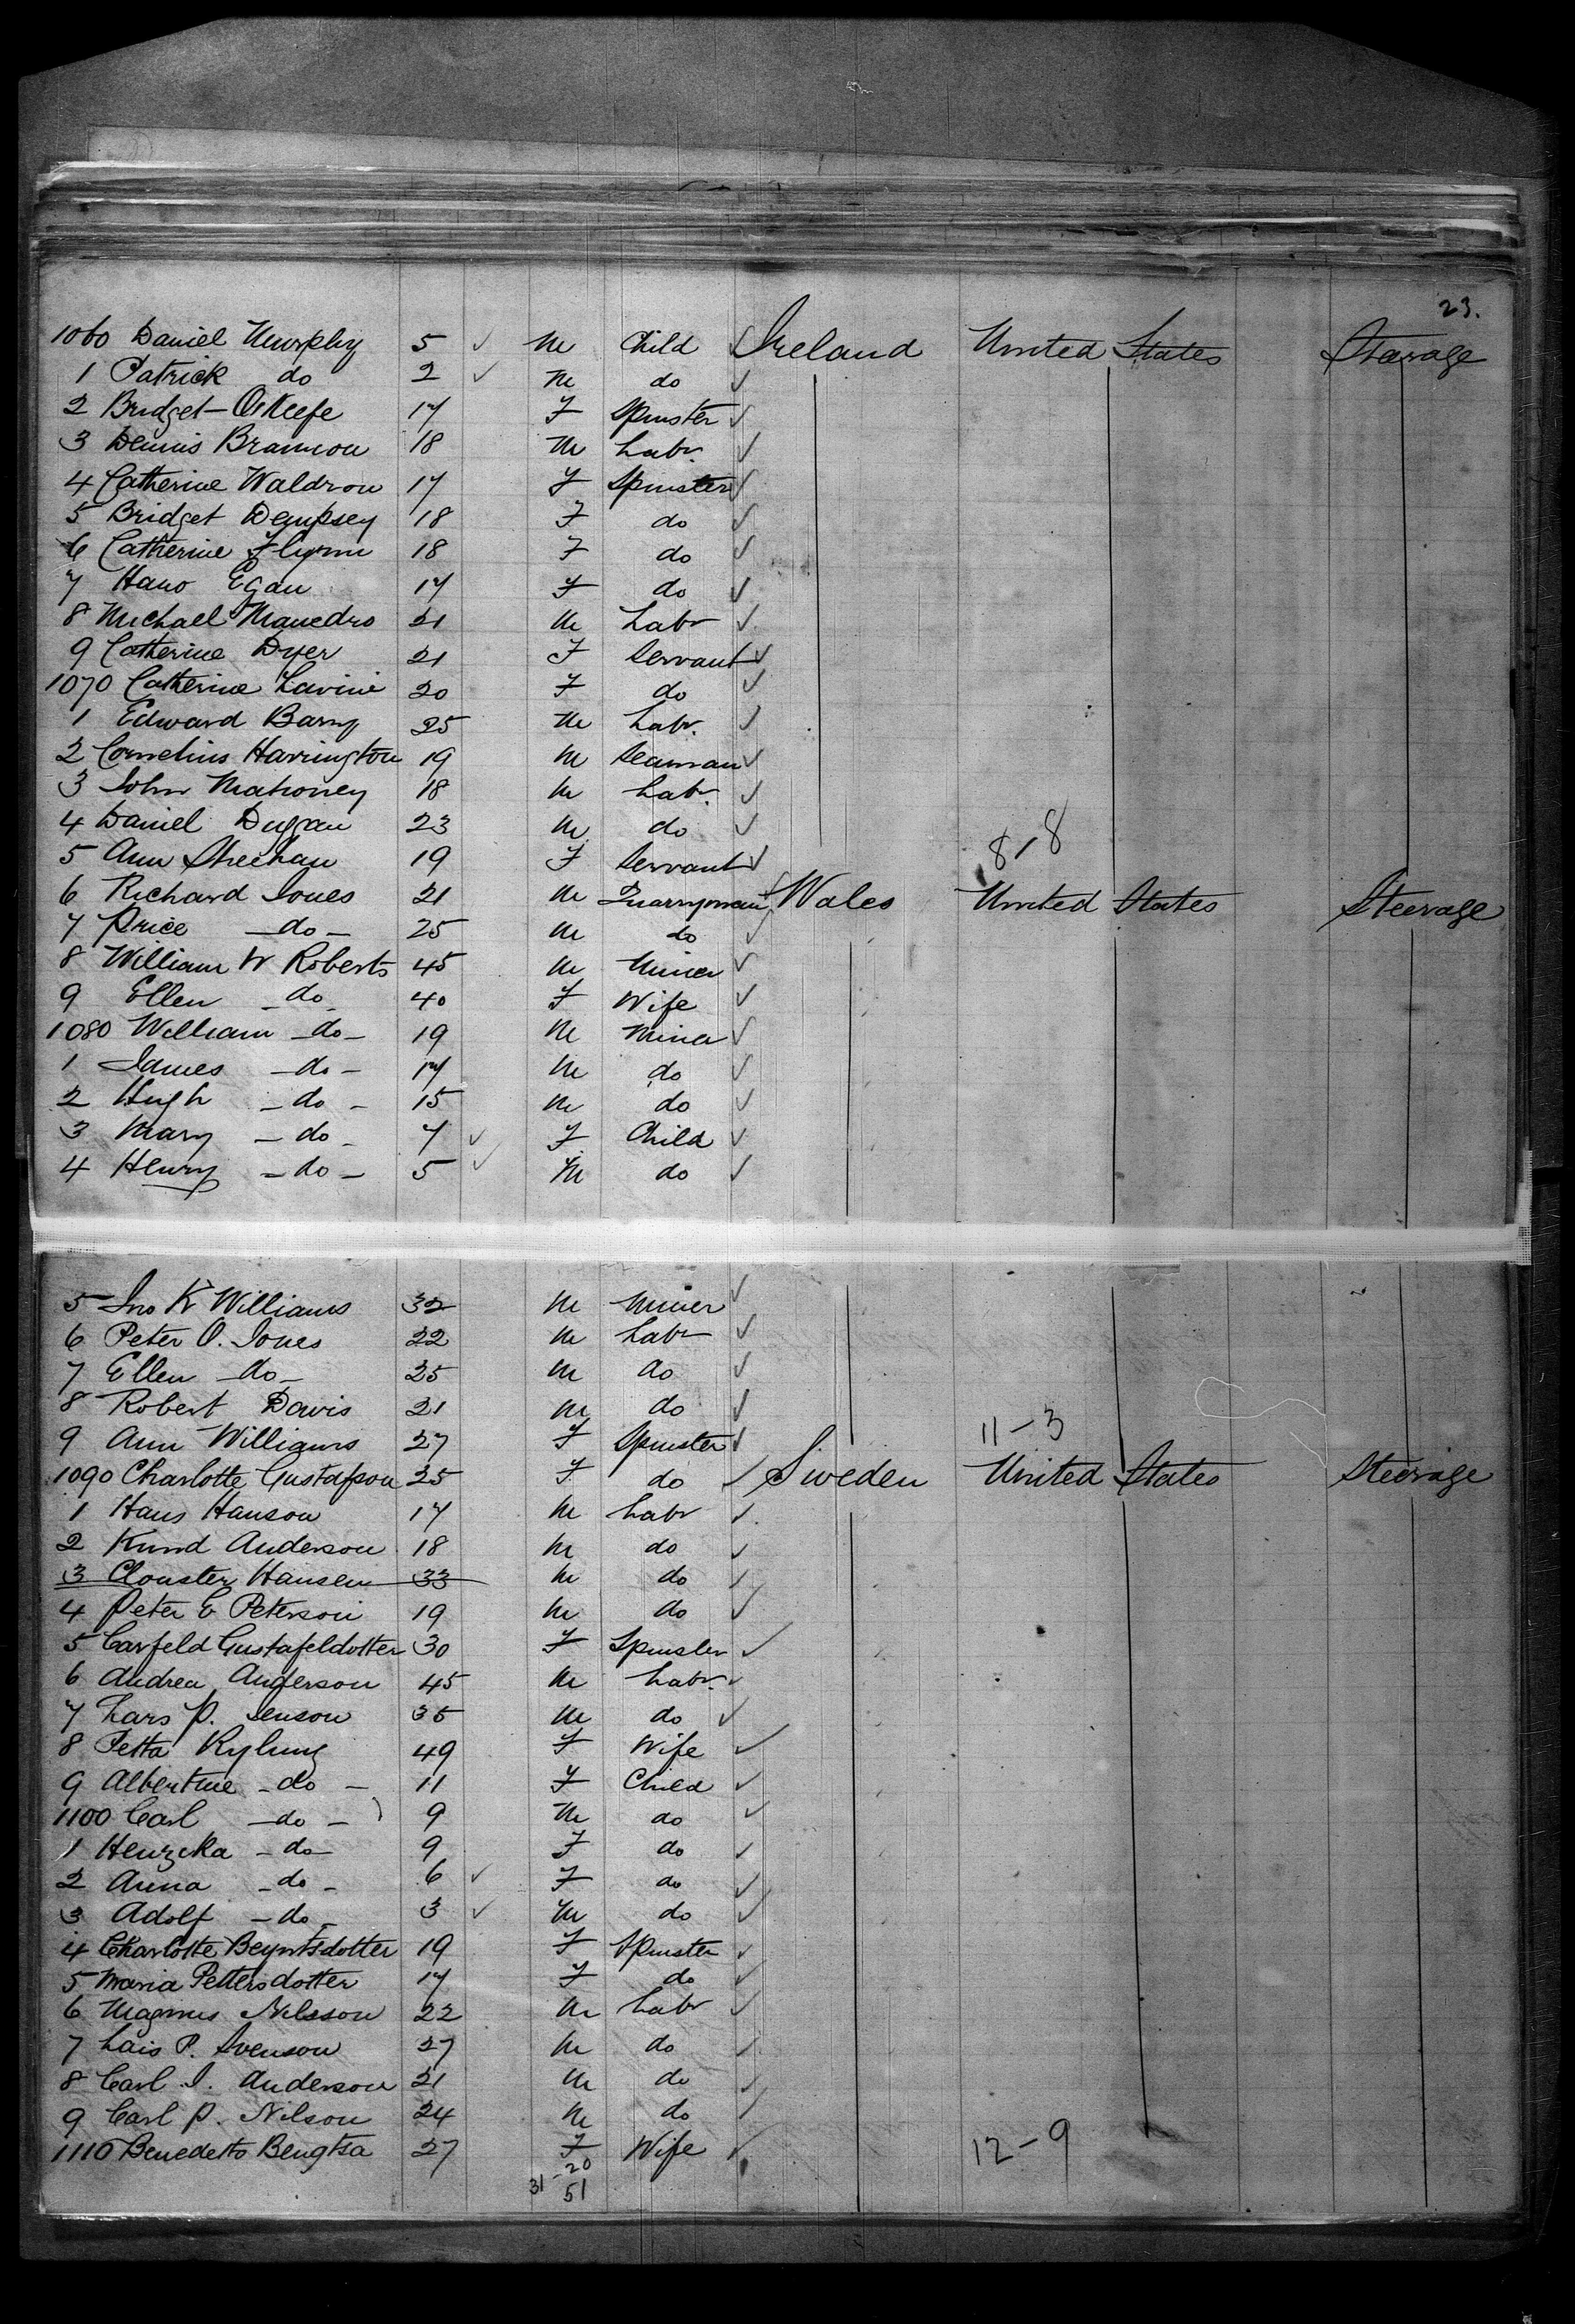 23.
1060 Daniel Murphy 5 ✓ M Child ✓ Ireland United States Steerage
1 Patrick do 2 ✓ M do ✓
2 Bridget O'Keefe 17 F Spinster ✓
3 Dennis Brannon 18 M Labr ✓
4 Catherine Waldron 17 F Spinster ✓
5 Bridget Dempsey 18 F do ✓
6 Catherine Flynn 18 F do ✓
7 Hano Egan 17 F do ✓
8 Michael 21 M Labr ✓
9 Catherine Dyer 21 F Servant ✓
1070 Catherine Lavine 20 F do ✓
1 Edward Barry 25 M Labr. ✓
2 Cornelius Harrington 19 M Seaman ✓
3 John Mahoney 18 M Labr. ✓
4 Daniel Dugan 23 M do ✓
5 Ann Sheehan 19 F Servant ✓ 8 18
6 Richard Jones 21 M Quarryman ✓ Wales United States Steerage
7 Price - do - 25 M do ✓
8 William W Roberts 45 M Miner ✓
9 Ellen - do - 40 F Wife ✓
1080 William - do - 19 M Miner ✓
1 James - do - 17 M do ✓
2 Hugh - do - 15 M do ✓
3 Mary - do - 7 ✓ F Child ✓
4 Henry - do - 5 ✓ M do ✓
5 Jno K Williams 32 M Miner ✓
6 Peter O. Jones 22 M Labr ✓
7 Ellen - do - 25 M do ✓
8 Robert Davis 21 M do ✓
9 Ann Williams 27 F Spinster ✓ 11-3
1090 Charlotte Gustafson 25 F do ✓ Sweden United States Steerage
1 Hans Hanson 17 M Labr ✓
2 Knud Anderson 18 M do ✓
3 Clouster Hansen 33 M do ✓
4 Peter E Peterson 19 M do ✓
5 Carfeld Gustafeldotter 30 F Spinster ✓
6 Andrea Anderson 45 M Labr. ✓
7 Lars P. Jenson 35 M do ✓
8 Petta Rylung 49 F Wife ✓
9 Albertine - do - 11 F Child ✓
1100 Carl - do - 9 M do ✓
1 - do - 9 F do ✓
2 Anna - do - 6 ✓ F do ✓
3 Adolf - do - 3 ✓ M do ✓
4 Charlotte Beyntsdotter 19 F Spinster ✓
5 Maria Pettersdotter 17 F do ✓
6 Magnus Nilsson 22 M Labr ✓
7 Lais P. Svenson 27 M do ✓
8 Carl J. Anderson 21 M do ✓
9 Carl P. Nilson 24 M do ✓
1110 Benedetto Bengtsa 27 F Wife ✓ 12-9
31-20
51